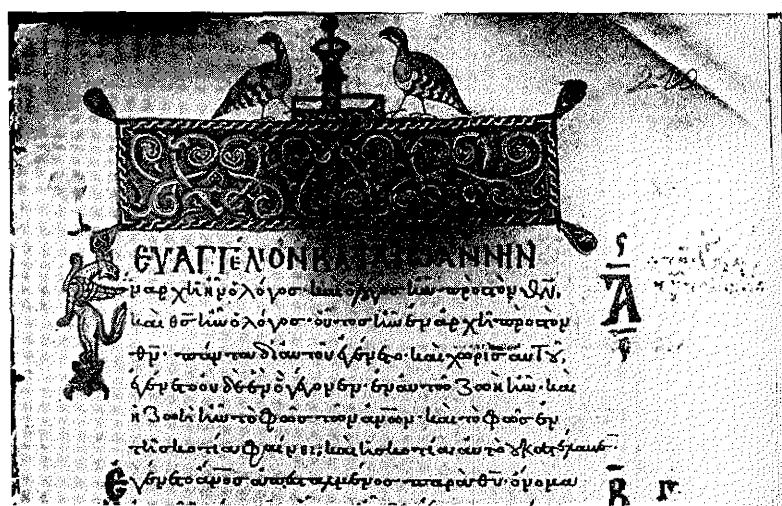 ΕΥΑΓΓΕΛΙΟΝ ΚΑΤΑ ΙΩΑΝΝΗΝ
Ἐν ἀρχῆ ἦν ὁ λόγος· καὶ ὁ λόγος ἦν πρὸς τὸν θ̅ν̅·
καὶ θ̅ς̅ ἦν ὁ λόγος· οὗτος ἦν ἐν ἀρχῆ πρὸς τὸν
θ̅ν̅· πάντα δι' αὐτοῦ ἐγένετο· καὶ χωρὶς αὐτοῦ,
ἐγένετο οὐδὲ ἓν ὃ γέγονεν· ἐν αὐτῶ ζωὴ ἦν· καὶ
ἡ ζωὴ ἦν τὸ φῶς τῶν ἀ̅ν̅ω̅ν̅· καὶ τὸ φῶς ἐν
τῆ σκοτία φαίνει, καὶ ἡ σκοτία αὐτὸ οὐ κατέλαβεν·
Ἐγένετο ἄ̅ν̅ο̅ς̅ ἀπεσταλμένος παρὰ θ̅υ̅· ὄνομα
Α
Β